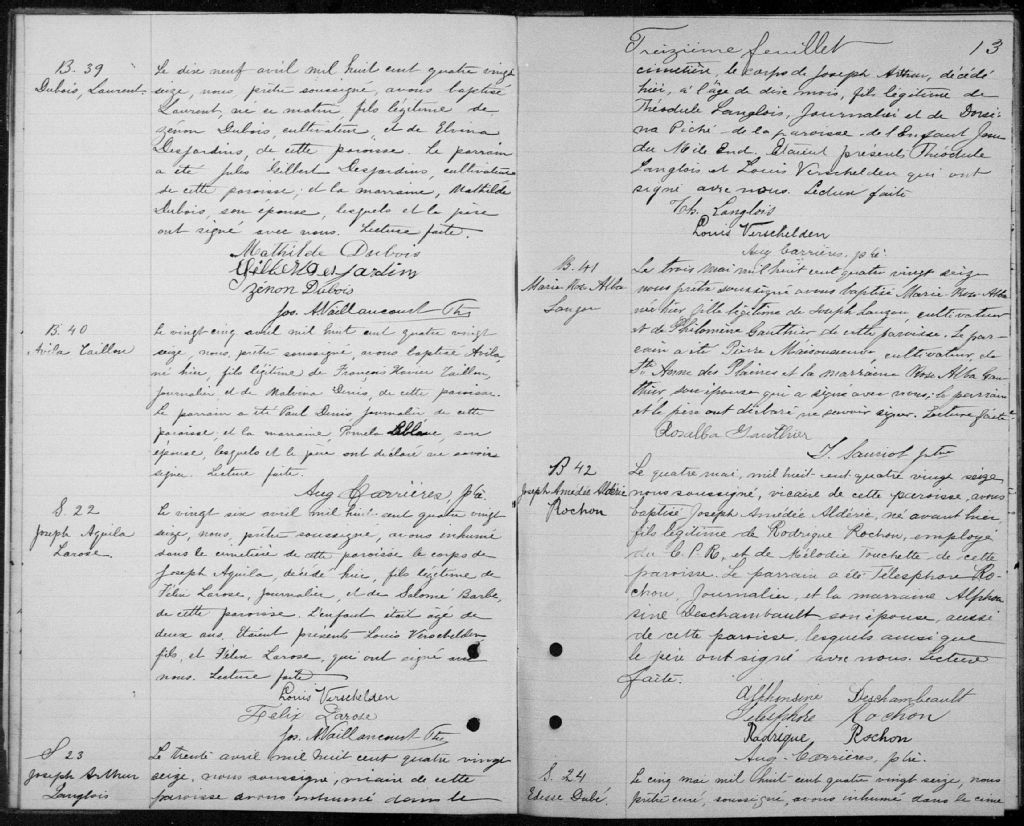 B. 39
Dubois, Laurent
Le dix neuf avril mil huit cent quatre vingt
seize, nous, prêtre soussigné, avons baptisé
Laurent, né ce matin, fils légitime de
Zénon Dubois, cultivateur, et de Elvina
Desjardins, de cette paroisse. Le parrain
a été Jules Gilbert Desjardins, cultivateur
de cette paroisse; et la marraine, Mathilde
Dubois, son épouse, lesquels et le père
ont signé avec nous. Lecture faite.
Mathilde Dubois
Gilbert Desjardins
Zénon Dubois
Jos. A. Vaillancourt Ptre
B. 40
Avila Taillon
Le vingt cinq avril mil huit cent quatre vingt
seize, nous, prêtre soussigné, avons baptisé Avila
né hier, fils légitime de François Xavier Taillon,
journalier et de Malvina Denis, de cette paroisse.
Le parrain a été Paul Denis journalier de cette
paroisse, et la marraine, Pomela Leblanc, son
épouse, lesquels et le père ont déclaré ne savoir
signer. Lecture faite.
Aug Carrières, ptr.
S. 22
Joseph Aquila
Larose.
Le vingt six avril mil huit cent quatre vingt
seize, nous, prêtre soussigné, avons inhumé
dans le cimetière de cette paroisse le corps de
Joseph Aquila, décédé hier, fils légitime de
Félix Larose, journalier, et de Salomé Barbe,
de cette paroisse. L'enfant était âgé de
deux ans. Etaient présents Louis Verschelden
fils, et Félix Larose, qui ont signé avec
nous. Lecture faite
Louis Verschelden
Félix Larose
Jos. A. Vaillancourt Ptre
S 23
Joseph Arthur
Langlois
Le trente avril mil huit cent quatre vingt
seize, nous soussigné, vicaire de cette
paroisse avons inhumé dans le
Treizième feuillet 13
cimetière, le corps de Joseph Arthur, décédé
hier, à l'âge de dix mois, fils légitime de
Théodule Langlois, Journalier et de Dorsi-
na Piché de la paroisse de l'Enfant Jésus
du Mile End. Etaient présents Théodule
Langlois et Louis Verschelden qui ont
signé avec nous. Lecture faite
Th. Langlois
Louis Verschelden
Aug Carrières, ptr.
B. 41
Marie Rose Alba
Lauzon
Le trois mai mil huit cent quatre vingt seize
nous prêtre soussigné avons baptisé Marie Rose Alba
née hier fille légitime de Joseph Lauzon, cultivateur
et de Philomène Gauthier de cette paroisse. Le par-
rain a été Pierre Maisonneuve, cultivateur, de
Ste Anne des Plaines et la marraine Rose Alba Gau-
thier, son épouse qui a signé avec nous; le parrain
et le père ont déclaré ne pouvoir signer. Lecture faite
Rosalba Gauthier
J. Sauriol ptre
B 42
Joseph Amédée Aldéric
Rochon
Le quatre mai, mil huit cent quatre vingt seize
nous soussigné, vicaire de cette paroisse, avons
baptisé Joseph Amédée Aldéric, né avant hier,
fils légitime de Rodrigue Rochon, employé
du C. P. R, et de Mélodie Touchette de cette
paroisse. Le parrain a été Télesphore Ro-
chon, Journalier, et la marraine Alphon
sine Deschambault son épouse, aussi
de cette paroisse, lesquels ainsi que
le père ont signé avec nous. Lecture
faite.
Alphonsine Deschambeault
Télesphore Rochon
Rodrigue Rochon
Aug. Carrières, ptr.
S. 24
Edesse Dubé.
Le cinq mai mil huit cent quatre vingt seize, nous
prêtre curé, soussigné, avons inhumé dans le cime